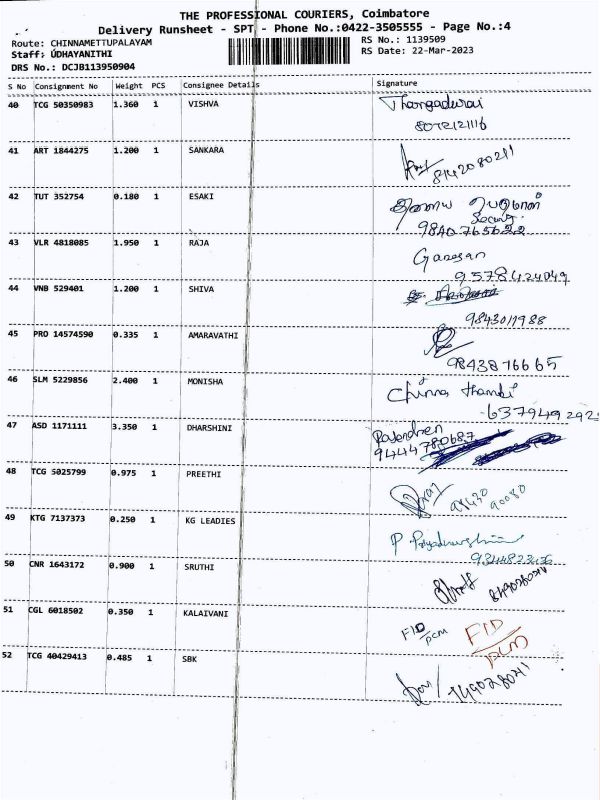 THE PROFESSIONAL COURIERS, Coimbatore
Delivery Runsheet - SPT - Phone No.:0422-3505555 - Page No.:4
Route: CHINNAMETTUPALAYAM
RS No.: 1139509
Staff: UDHAYANITHI
RS Date: 22-Mar-2023
DRS No.: DCJB113950904
S No Consignment No Weight PCS Consignee Details Signature
40 TCG 50350983 1.360 1 VISHVA Thangadurai
8072121116
41 ART 1844275 1.200 1 SANKARA
8142080211
42 TUT 352754 0.180 1 ESAKI
9840765622
43 VLR 4818085 1.950 1 RAJA Ganesan
9578424049
44 VNB 529401 1.200 1 SHIVA
9843011988
45 PRO 14574590 0.335 1 AMARAVATHI
9843876665
46 SLM 5229856 2.400 1 MONISHA Chinna thambi
637949292
47 ASD 1171111 3.350 1 DHARSHINI Rajendren
9444780687
48 TCG 5025799 0.975 1 PREETHI
98430 90080
49 KTG 7137373 0.250 1 KG LEADIES
50 CNR 1643172 0.900 1 SRUTHI
51 CGL 6018502 0.350 1 KALAIVANI FID
PCM
FID
PCM
52 TCG 40429413 0.485 1 SBK